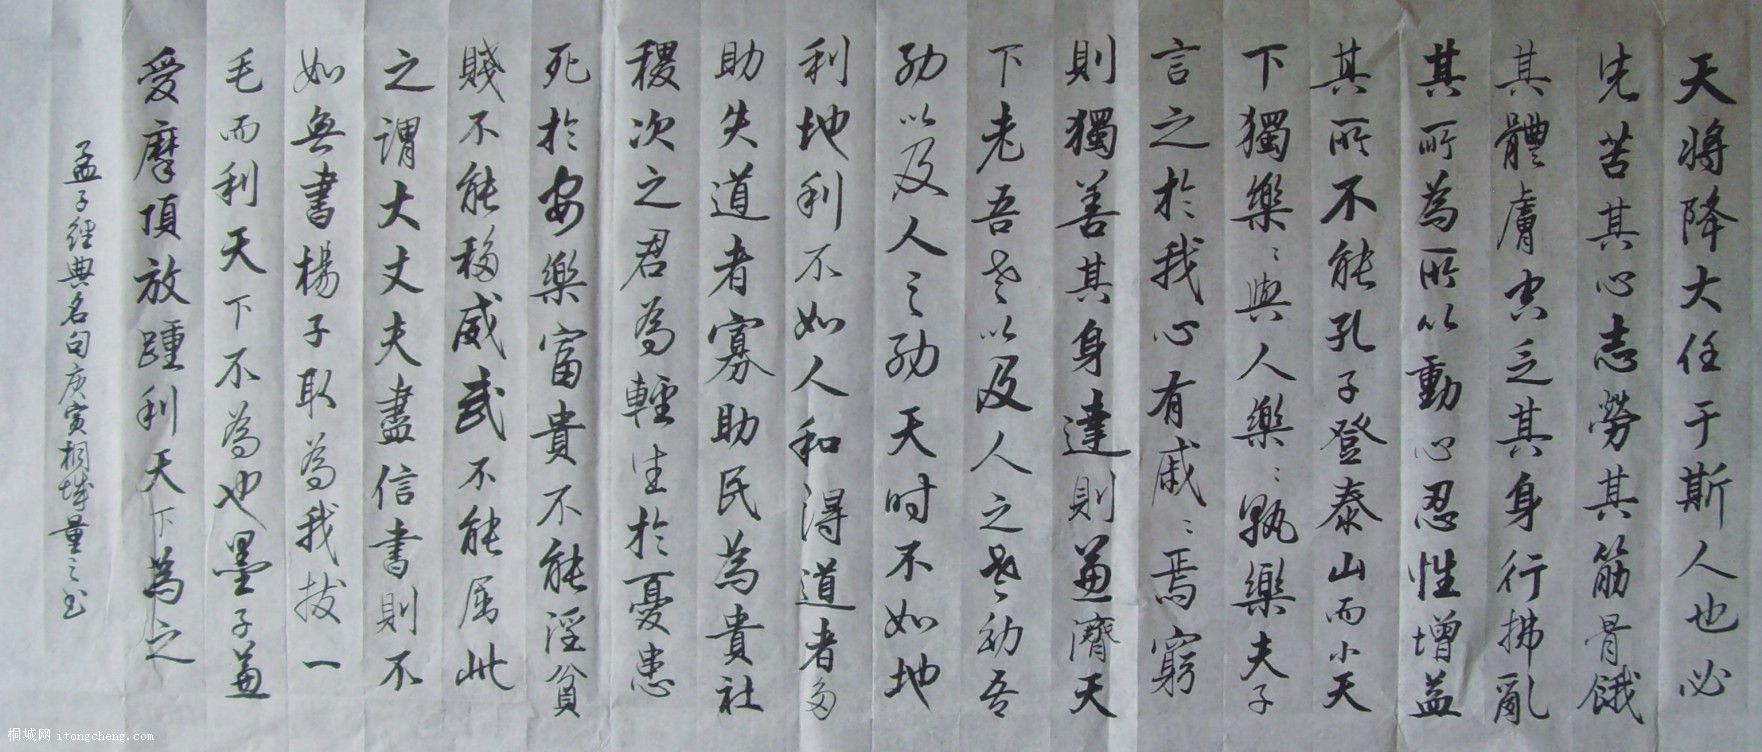 天将降大任于斯人也必
先苦其心志勞其筋骨餓
其體膚空乏其身行拂亂
其所為所以動心忍性增益
其所不能孔子登泰山而小天
下獨樂〻與人樂〻孰樂夫子
言之於我心有戚〻焉窮
則獨善其身達則兼濟天
下老吾老以及人之老幼吾
幼以及人之幼天时不如地
利地利不如人和得道者多
助失道者寡助民為貴社
稷次之君為輕生於憂患
死於安樂富貴不能淫貧
賤不能移威武不能屈此
之謂大丈夫盡信書則不
如無書楊子取為我拔一
毛而利天下不為也墨子兼
愛摩頂放踵利天下為之
孟子經典名句庚寅桐城量之书
桐城网 itongcheng.com